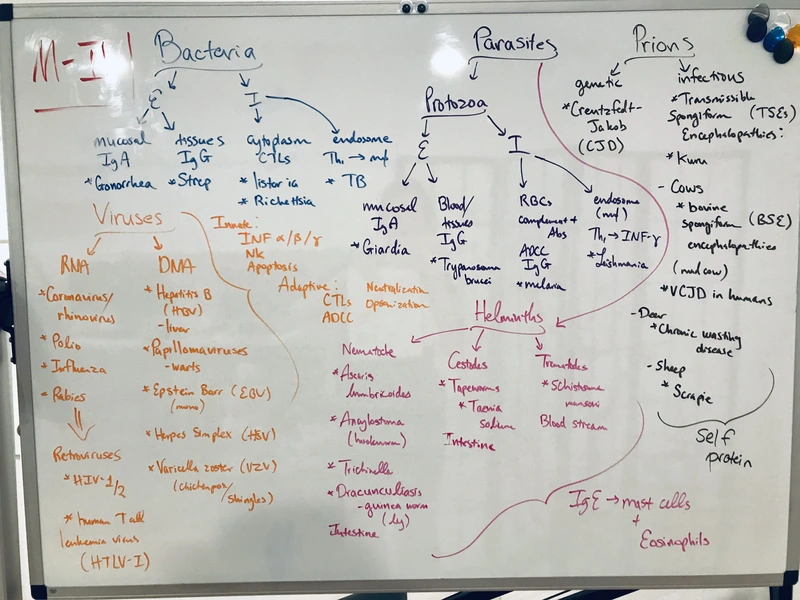 M-III
Bacteria
E
I
mucosal
IgA
* Gonorrhea
tissues
IgG
* Strep
cytoplasm
CTLs
* listeria
* Richettsia
endosome
Th₁ → mφ
* TB
Viruses
RNA
* Coronavirus/
rhinovirus
* Polio
* Influenza
* Rabies
Retroviruses
* HIV-1/2
* human T cell
leukemia virus
(HTLV-I)
DNA
* Hepatitis B
(HBV)
- liver
* Papillomaviruses
- warts
* Epstein Barr (EBV)
(mono)
* Herpes Simplex (HSV)
* Varicella zoster (VZV)
(chickenpox/
shingles)
Innate:
INF α/β/γ
NK
Apoptosis
Adaptive:
CTLs
ADCC
Neutralization
Opsonization
Parasites
Protozoa
E
I
mucosal
IgA
* Giardia
Blood/
tissues
IgG
* Trypanosoma
brucei
RBCs
complement +
Abs
ADCC
IgG
* malaria
endosome
(mφ)
Th₁ → INF-γ
* Leishmania
Helminths
Nematode
* Ascaris
lumbricoides
* Ancylostoma
(hookworm)
* Trichinella
* Dracunculiasis
- guinea worm
(leg)
Intestine
Cestodes
* Tapeworms
* Taenia
solium
Intestine
Trematodes
* Schistosoma
mansoni
Blood stream
IgE → mast cells
+
Eosinophils
Prions
genetic
* Creutzfedt-
Jakob
(CJD)
infectious
* Transmissible
Spongiform (TSEs)
Encephalopathies:
* Kuru
- Cows
* bovine
spongiform (BSE)
encephalopathies
(mad cow)
* VCJD in humans
- Deer
* Chronic wasting
disease
- Sheep
* Scrapie
Self
protein